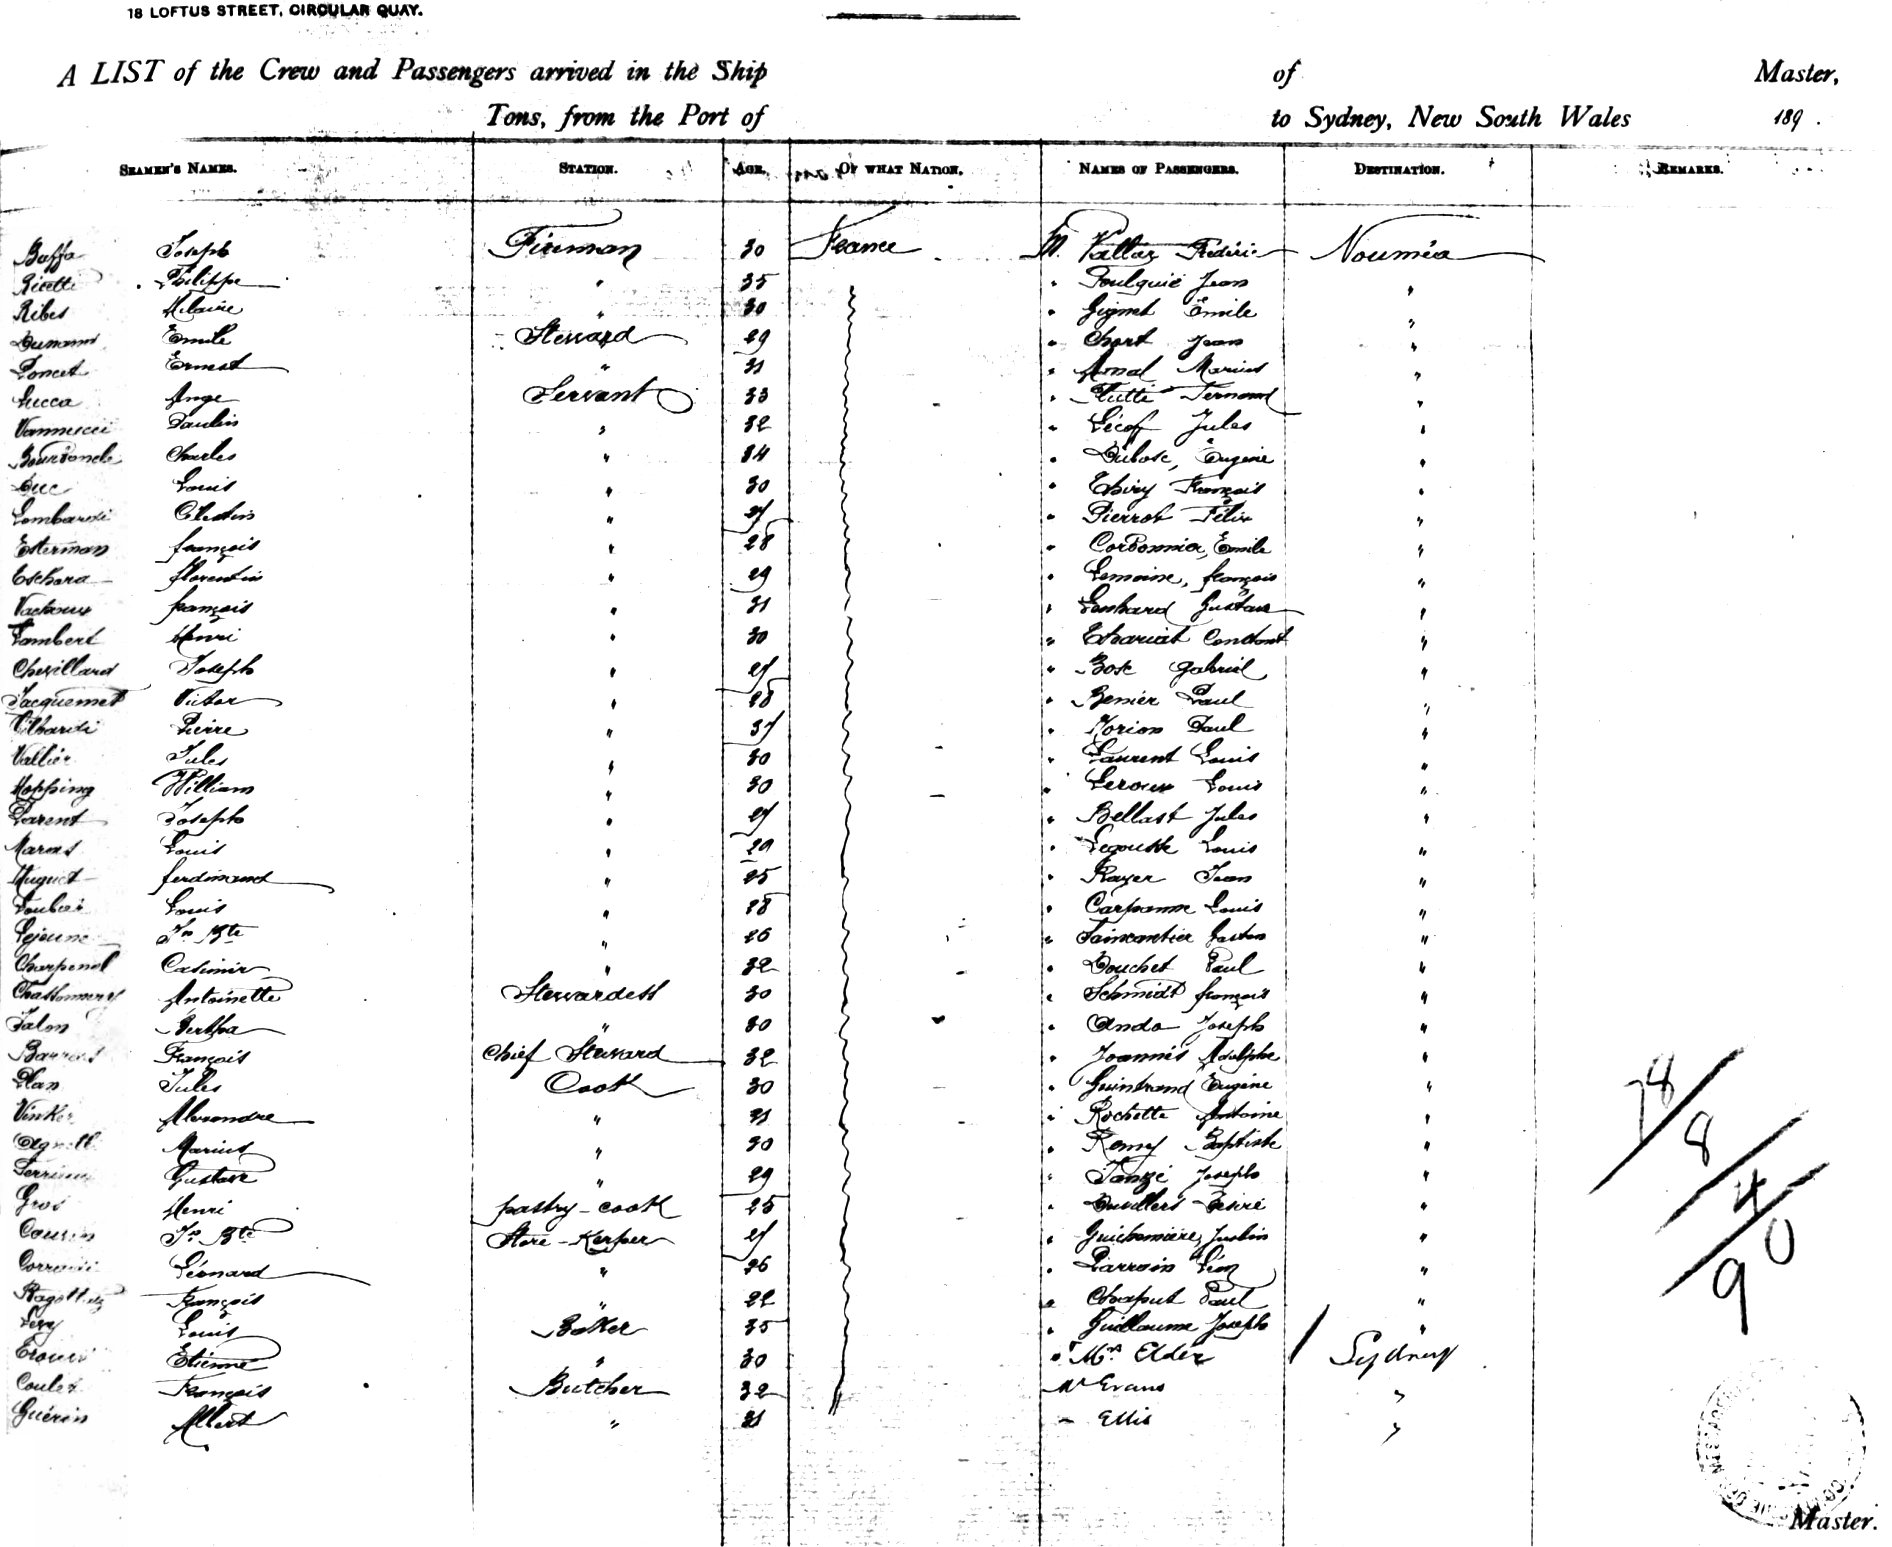 18 LOFTUS STREET, CIRCULAR QUAY.
A LIST of the Crew and Passengers arrived in the Ship of Master,
Tons, from the Port of to Sydney, New South Wales 189 .
SEAMEN'S NAMES. STATION. AGE. OF WHAT NATION. NAMES OF PASSENGERS. DESTINATION. REMARKS.
Baffa Joseph Fireman 30 France M. Frédéric Nouméa
Ricetti Philippe " 35 " Foulquié Jean "
Ribes Hilaire " 30 " Émile "
Durand Emile Steward 29 " Chort Jean "
Poncet Ernest " 31 " Arnal Marius "
Lucca Ange Servant 33 " Fernand "
Vannucci Paulin " 32 " Jules "
Charles " 34 " Dubosc, Eugène "
Duc Louis " 30 " Thiry François "
Lombardi Célestin " 27 " Pierrot Félix "
Esterman françois " 28 " Cordonnier, Emile "
Eschara florentin " 29 " Lemoine, françois "
françois " 31 " Lenhard Gustave "
Lambert Henri " 30 " Thariat Constant "
Chevillard Joseph " 27 " Bosc Gabriel "
Jacquemet Victor " 28 " Benier Paul "
Pierre " 37 " Morion Paul "
Vallier Jules " 30 " Laurent Louis "
Hopping William " 30 " Leroux Louis "
Parent Joseph " 27 " Bellast Jules "
Louis " 29 " Legouste Louis "
Huguet ferdinand " 25 " Rayer Jean "
Loubet Louis " 28 " Louis "
Lejeune Jn Bte " 26 " Gaston "
Charpenel Casimir " 32 " Bouchet Paul "
Antoinette Stewardess 30 " Schmidt françois "
Talon Bertha " 30 " Anda Joseph "
François Chief Steward 32 " Joannès Adolphe "
Plan Jules Cook 30 " Guintrand Eugène "
Alexandre " 31 " Rochette Antoine "
Marius " 30 " Remy Baptiste "
Gustave " 29 " Joseph "
Gros Henri pastry-cook 25 " Désiré "
Cousin Jn Bte Store-Kerper 27 " Justin "
Léonard " 26 " Parrain Léon "
François " 22 " Chaput Paul "
Levy Louis Baker 35 " Guillaume Joseph "
Etienne " 30 " Mrs Elder Sydney
Coulet François Butcher 32 Mr Evans "
Guérin Albert " 31 – Ellis "
78/8/4/90
Master.